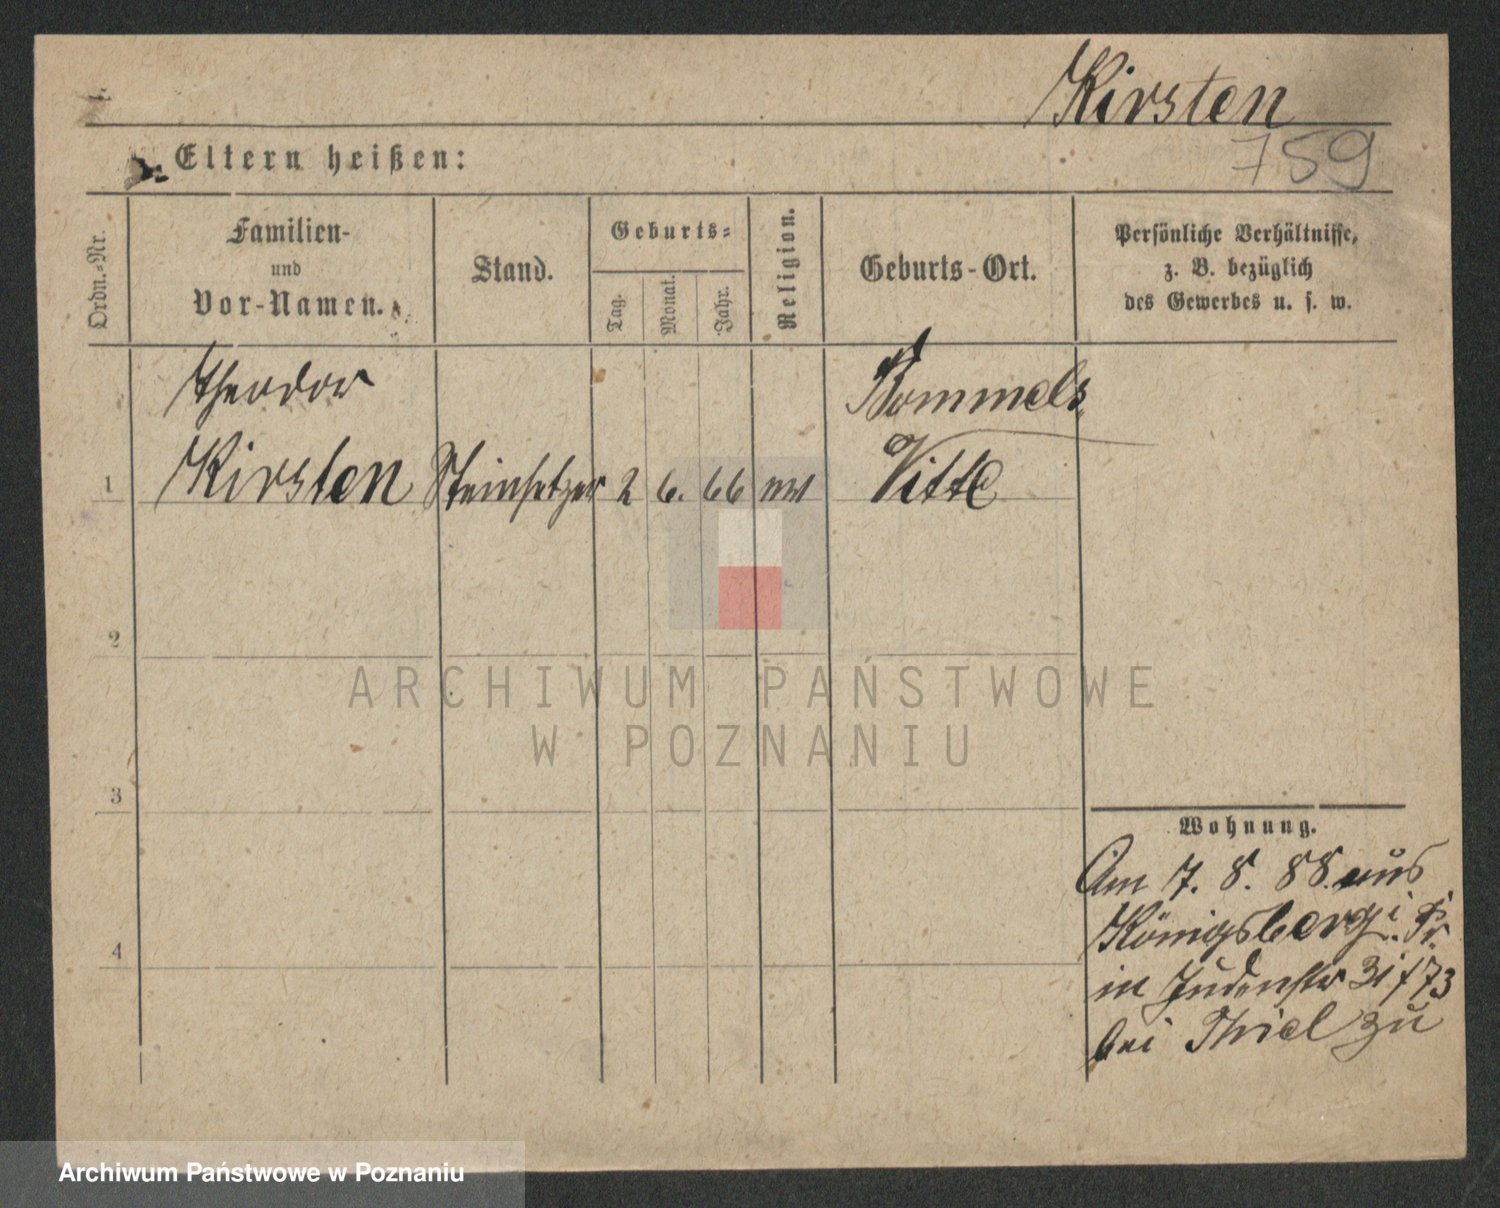 Kirsten
759
Eltern heißen:
Ordn.-Nr.
Familien-
und
Vor-Namen.
Stand.
Geburts-
Tag.
Monat.
Jahr.
Religion.
Geburts-Ort.
Persönliche Verhältnisse,
z. B. bezüglich
des Gewerbes u. s. w.
Theodor
Kirsten
Steinsetzer
2
6.
66
Pommels
Vitte
1
2
3
4
ARCHIWUM PAŃSTWOWE
W POZNANIU
Wohnung.
Am 7. 8. 88. aus
Königsberg i. Pr.
in Judenstr 31/73
bei Thiel zu
Archiwum Państwowe w Poznaniu